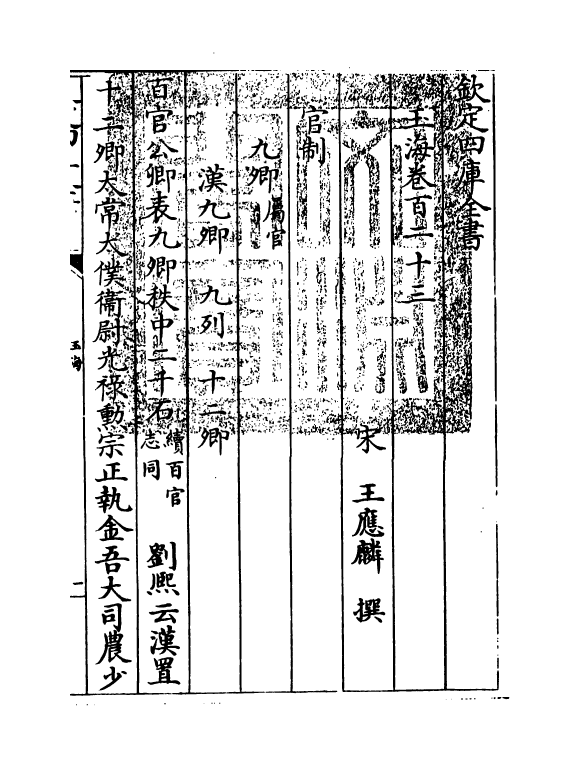 欽定四庫全書
玉海卷百二十三
宋 王應麟 撰
官制
九卿屬官
漢九卿 九列 十二卿
百官公卿表九卿秩中二千石續百官志同 劉熙云漢置
十二卿太常太僕衛尉光祿勳宗正執金吾大司農少
玉海